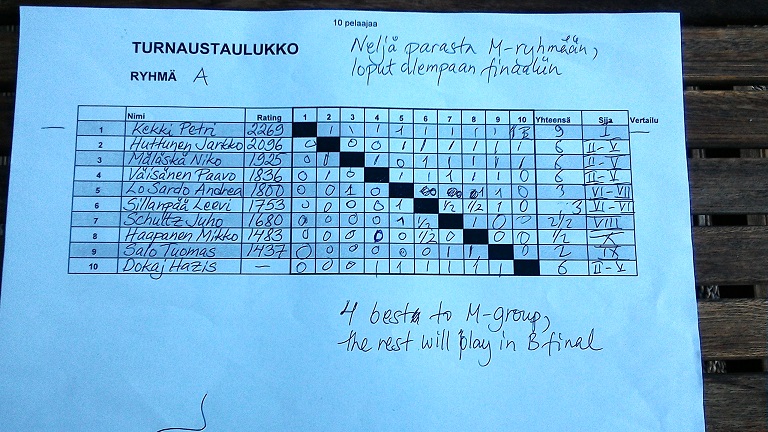 10 pelaajaa
TURNAUSTAULUKKO
Neljä parasta M-ryhmään,
loput alempaan finaaliin
RYHMÄ A
Nimi Rating 1 2 3 4 5 6 7 8 9 10 Yhteensä Sija Vertailu
1 Kekki Petri 2269 1 1 1 1 1 1 1 1 9 I
2 Huttunen Jarkko 2096 0 0 0 1 1 1 1 1 1 6 II-V
3 Mäläskä Niko 1925 0 1 1 0 1 1 1 1 6 II-V
4 Väisänen Paavo 1836 0 1 0 1 1 1 1 1 0 6 II-V
5 Lo Sardo Andrea 1800 0 0 1 0 1 1 0 3 VI-VII
6 Sillanpää Leevi 1753 0 0 0 0 1 1/2 1/2 1 0 3 VI-VII
7 Schultz Juho 1680 0 0 0 0 1 1/2 1 0 0 2 1/2 VIII
8 Haapanen Mikko 1483 0 0 0 0 0 1/2 0 0 0 1/2 X
9 Salo Tuomas 1437 0 0 0 0 0 0 1 1 0 2 IX
10 Dokaj Hazis - 0 0 0 1 1 1 1 1 1 6 II-V
4 best to M-group,
the rest will play in B final